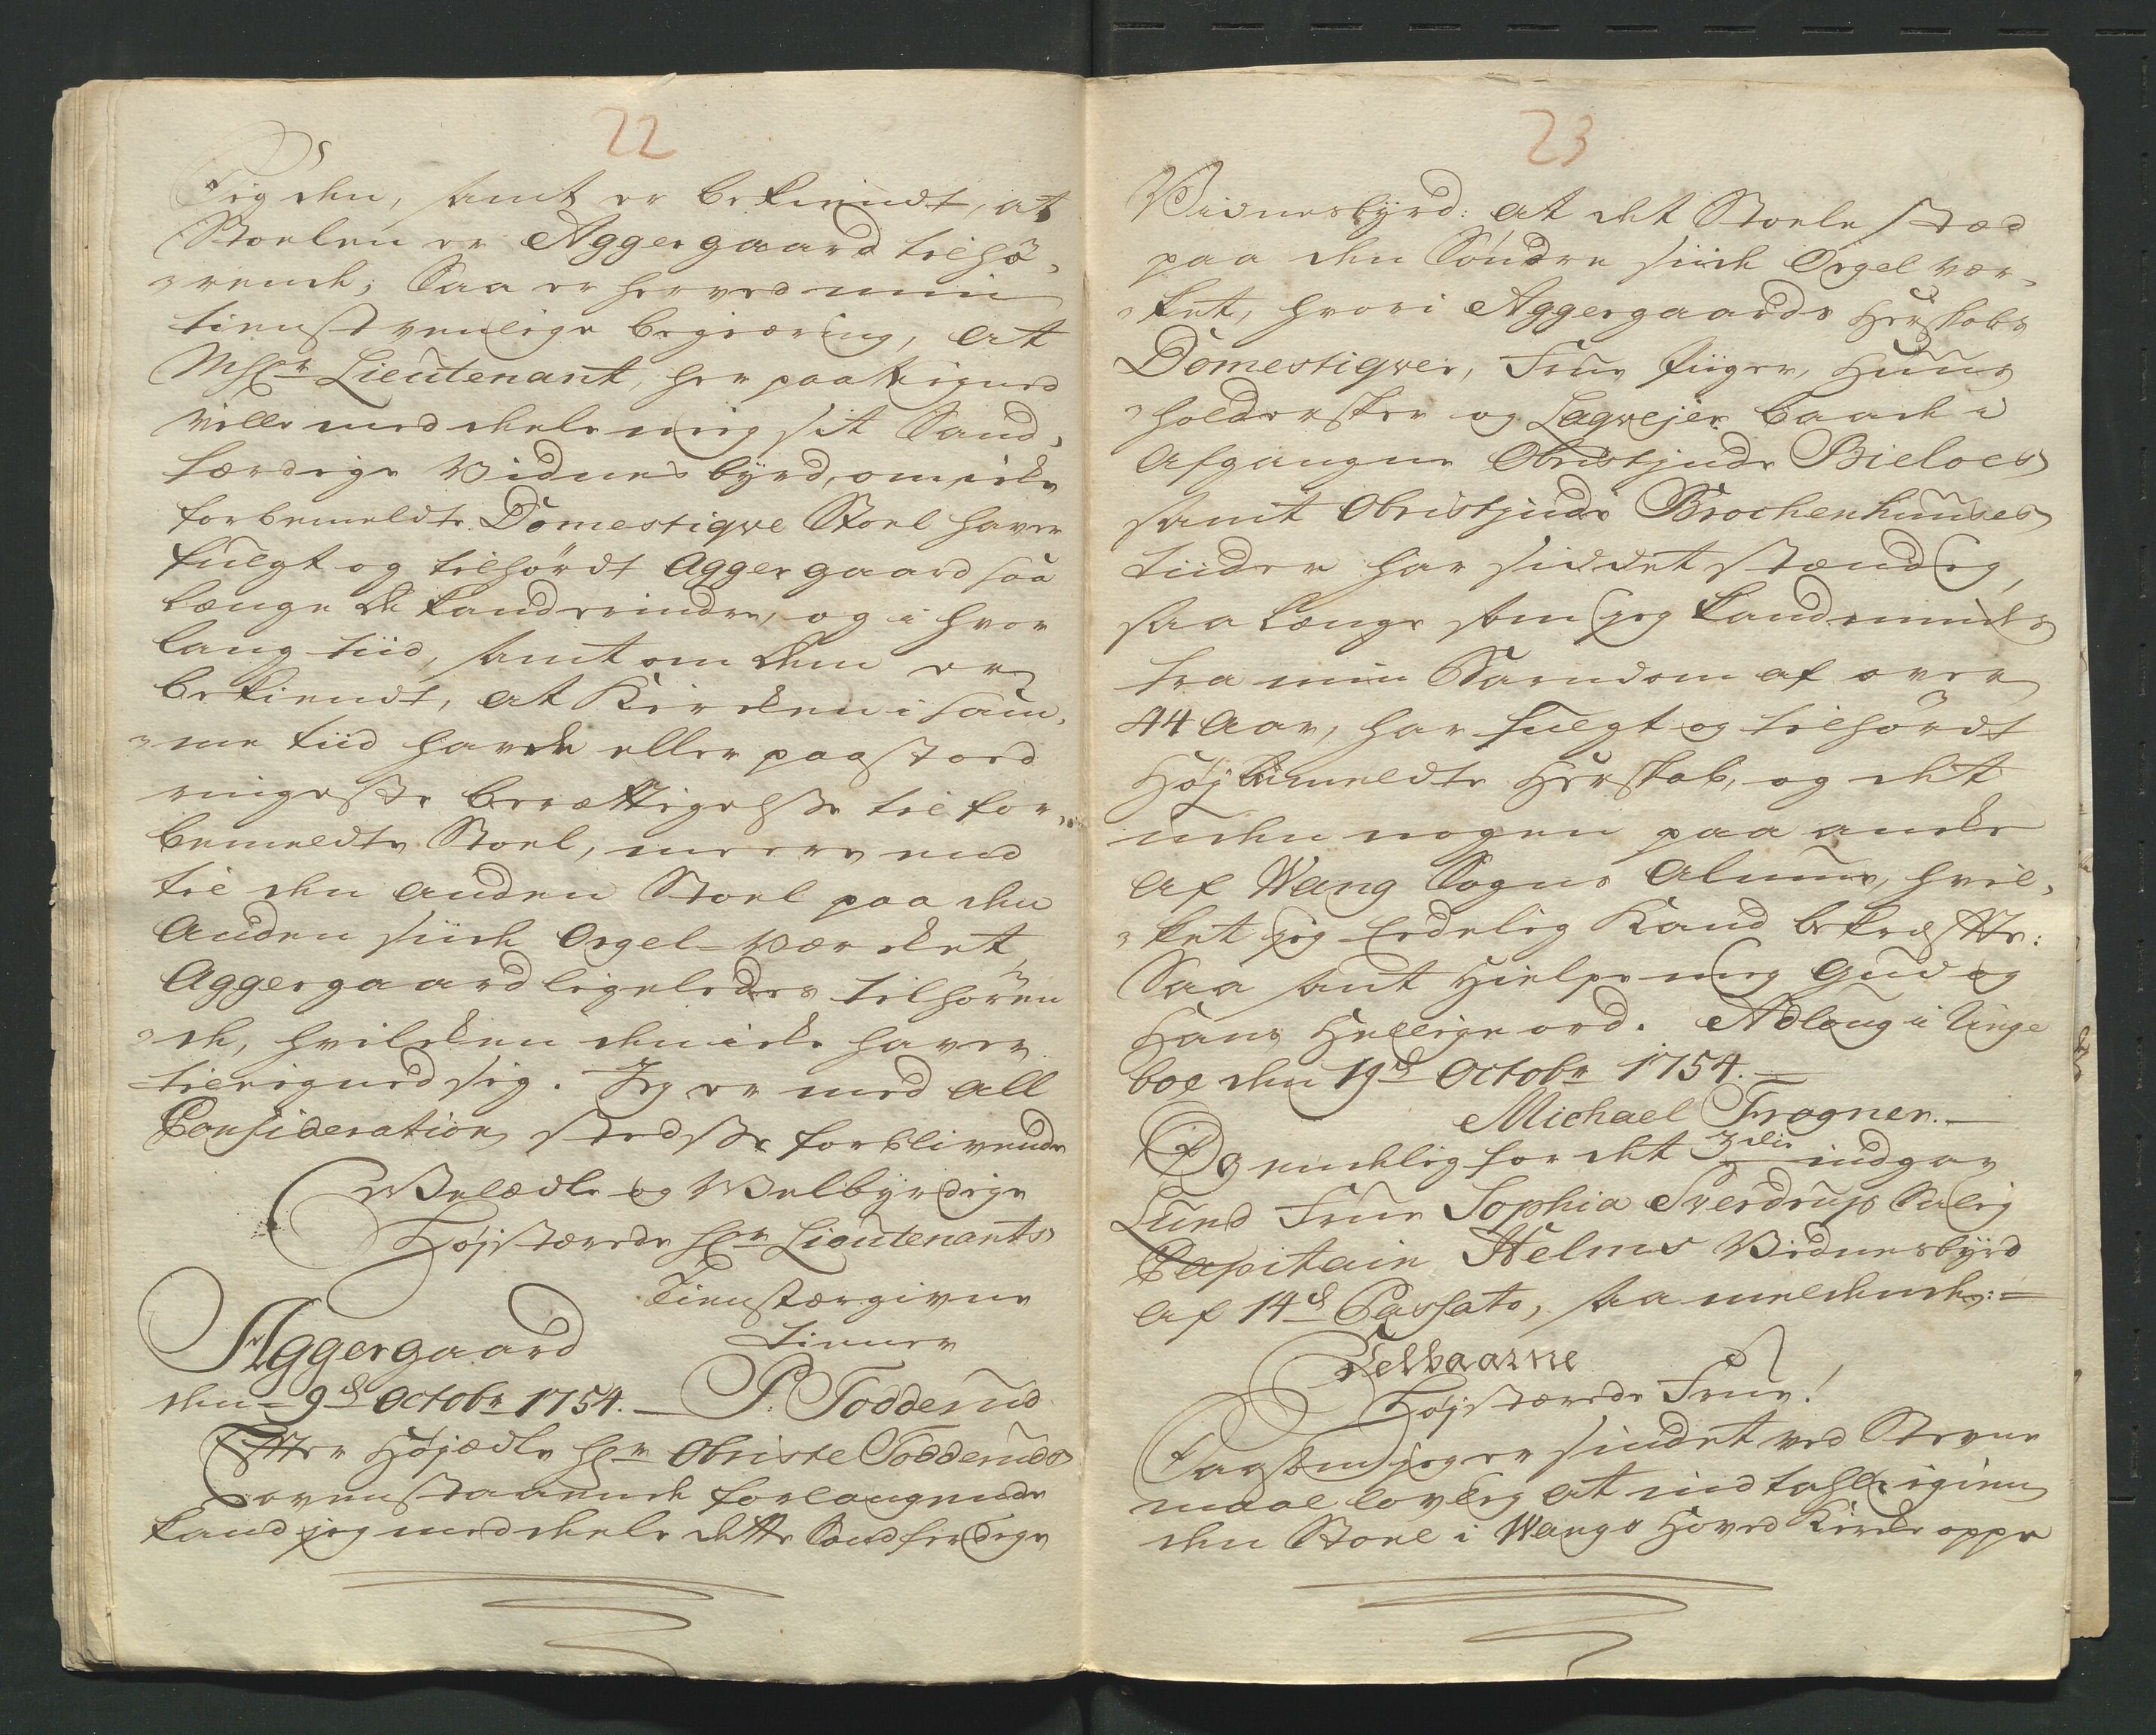 22
Tig den, samt er bekiendt, at
Stoelen er Aggergaard tilhø-
rende; Saa er herved min
tienstvenlige begiæring, at
Msr Lieutenant, her paategned
ville meddele mig sit Sand-
færdige Vidnesbyrd, om icke
forbemeldte Domestiqve Stoel haver
fulgt og tilhørdt Aggergaard saa
længe De kand erindre, og i hvor
lang tiid, samt om Dem er
bekiendt, at Kircken i sam-
me tiid havde eller paastoed
ringeste berættigelse til for-
bemeldte Stoel, meere end
til den anden Stoel paa den
anden siide Orgel-Værcket,
Aggergaard ligeledes tilhøren-
de, hvilcken den icke haver
tilegned sig. Jeg er med all
Consideration stedse forblivende
Velædle og Velbyrdige
Højstærede Hr Lieutenants
Tienstærgivne
tiener
Aggergaard
den 9d Octobr 1754. P: Todderud
Efter Højædle Hr Obriste Todderuds
ovenstaaende forlangende
kand jeg meddele dette Sandferdige
23
Vidnesbyrd: at det Stoele stæd
paa den Søndre siide Orgelvær-
ket, hvori Aggergaards Herskabs
Domestiqver, Frue piiger, Huus
holdersker og Laqvejer baade i
Afgangne Obristjuds Bieloes
samt Obristjuds Brochenhuuses
tiider har siddet stændig,
saa længe som jeg kand minde
fra min Barndom af over
44 Aar, har fulgt og tilhørdt
Højbemeldte Herskab, og det
uden nogen paa anke
af Wang Sogns Almue, hvil-
ket jeg Eedelig kand bekræfte:
Saa sant Hielpe mig Gud og
Hans Hellige ord. Adlong i Ringe
boe den 19d Octobr 1754.
Michael Frogner.
Og endelig for det 3die indgav
Lund Frue Sophia Sverdrup Salig
Capitain Helms Vidnesbyrd
af 14d Passato, saa meldende:
Velbaarne
Højstærede Frue!
Saasom jeg er sindet ved Stevne
maal lovlig at indtahle igien
den Stoel i Wangs Hoved Kircke oppe